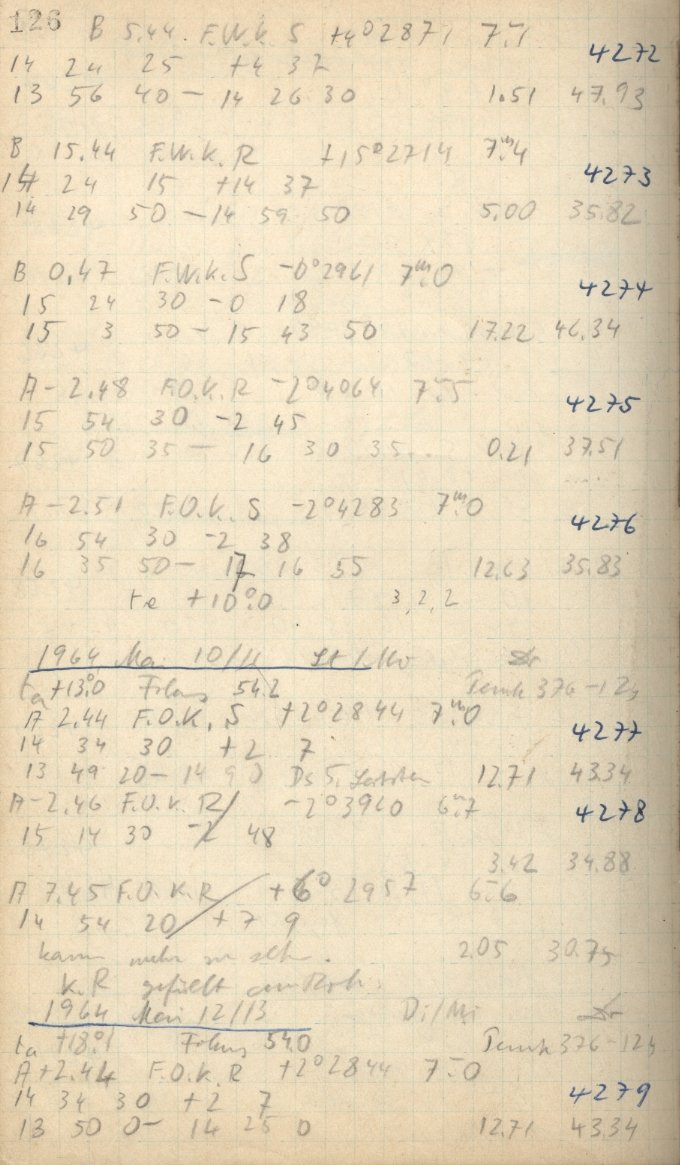 126 B 5.44 F.W.K. S +4°2871 7ᵐ.1
4272
14 24 25 +4 37
13 56 40 – 14 26 30 1.51 47.93
B 15.44 F.W.K. R +15°2714 7ᵐ.4
4273
14 24 15 +14 37
14 29 50 – 14 59 50 5.00 35.82
B 0.47 F.W.K. S –0°2961 7ᵐ.0
4274
15 24 30 –0 18
15 3 50 – 15 43 50 17.22 46.34
A –2.48 F.O.K. R –2°4064 7ᵐ.5
4275
15 54 30 –2 45
15 50 35 – 16 30 35 0.21 37.51
A –2.51 F.O.K. S –2°4283 7ᵐ.0
4276
16 54 30 –2 38
16 35 50 – 17 16 55 12.63 35.83
te +10°.0 3, 2, 2
1964 Mai 10/11
ta +13°.0 Fokus 54.2 376–12h
A 2.44 F.O.K. S +2°2844 7ᵐ.0
4277
14 34 30 +2 7
13 49 20 – 14 9 0 12.71 43.34
A –2.46 F.O.K. R –2°3920 6ᵐ.7
4278
15 14 30 –2 48
3.42 34.88
A 7.45 F.O.K. R +6° 2957 6ᵐ.6
14 54 20 +7 9
kaum mehr zu 2.05 30.75
K.R gefüllt
1964 Mai 12/13 Di/Mi
ta +18°.1 Fokus 54.0 376–12h
A +2.44 F.O.K. R +2°2844 7ᵐ.0
4279
14 34 30 +2 7
13 50 0 – 14 25 0 12.71 43.34